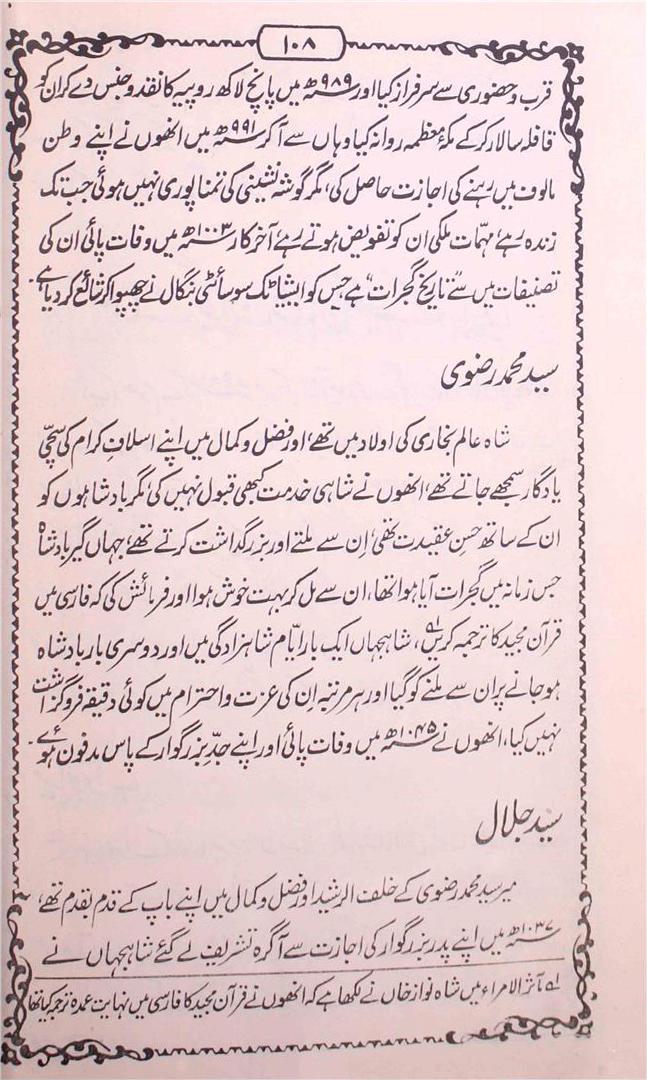 ۱۰۸
قرب و حضوری سے سرفراز کیا اور ۹۸۹ھ میں پانچ لاکھ روپیہ کا نقد و جنس دے کر ان کو
قافلہ سالار کر کے مکہ معظمہ روانہ کیا وہاں سے آ کر ۹۹۱ھ میں انھوں نے اپنے وطن
مالوف میں رہنے کی اجازت حاصل کی، مگر گوشہ نشینی کی تمنا پوری نہیں ہوئی جب تک
زندہ رہے، مہمّات ملکی ان کو تفویض ہوتے رہے، آخر کار ۱۰۰۳ھ میں وفات پائی ان کی
تصنیفات میں سے ”تاریخ گجرات“ ہے جس کو ایشیاٹک سوسائٹی بنگال نے چھپوا کر شائع کر دیا ہے۔
سید محمد رضوی
شاہ عالم بخاری کی اولاد میں تھے، اور فضل و کمال میں اپنے اسلافِ کرام کی سچّی
یادگار سمجھے جاتے تھے، انھوں نے شاہی خدمت کبھی قبول نہیں کی، مگر بادشاہوں کو
ان کے ساتھ حسنِ عقیدت تھی، اِن سے ملتے اور بزرگداشت کرتے تھے، جہاں گیر بادشاہ
جس زمانہ میں گجرات آیا ہوا تھا، ان سے مل کر بہت خوش ہوا اور فرمائش کی کہ فارسی میں
قرآن مجید کا ترجمہ کریں ؎۱، شاہجہاں ایک بار ایّام شاہزادگی میں اور دوسری بار بادشاہ
ہو جانے پر ان سے ملنے کو گیا اور ہر مرتبہ اِن کی عزت و احترام میں کوئی دقیقہ فروگزاشت
نہیں کیا، انھوں نے ۱۰۴۵ھ میں وفات پائی اور اپنے جدِّ بزرگوار کے پاس مدفون ہوئے۔
سید جلال
میر سید محمد رضوی کے خلف الرشید اور فضل و کمال میں اپنے باپ کے قدم بقدم تھے،
۱۰۳۷ھ میں اپنے پدر بزرگوار کی اجازت سے آگرہ تشریف لے گئے شاہجہاں نے
؎۱ مآثر الامراء میں شاہ نواز خاں نے لکھا ہے کہ انھوں نے قرآن مجید کا فارسی میں نہایت عمدہ ترجمہ کیا تھا